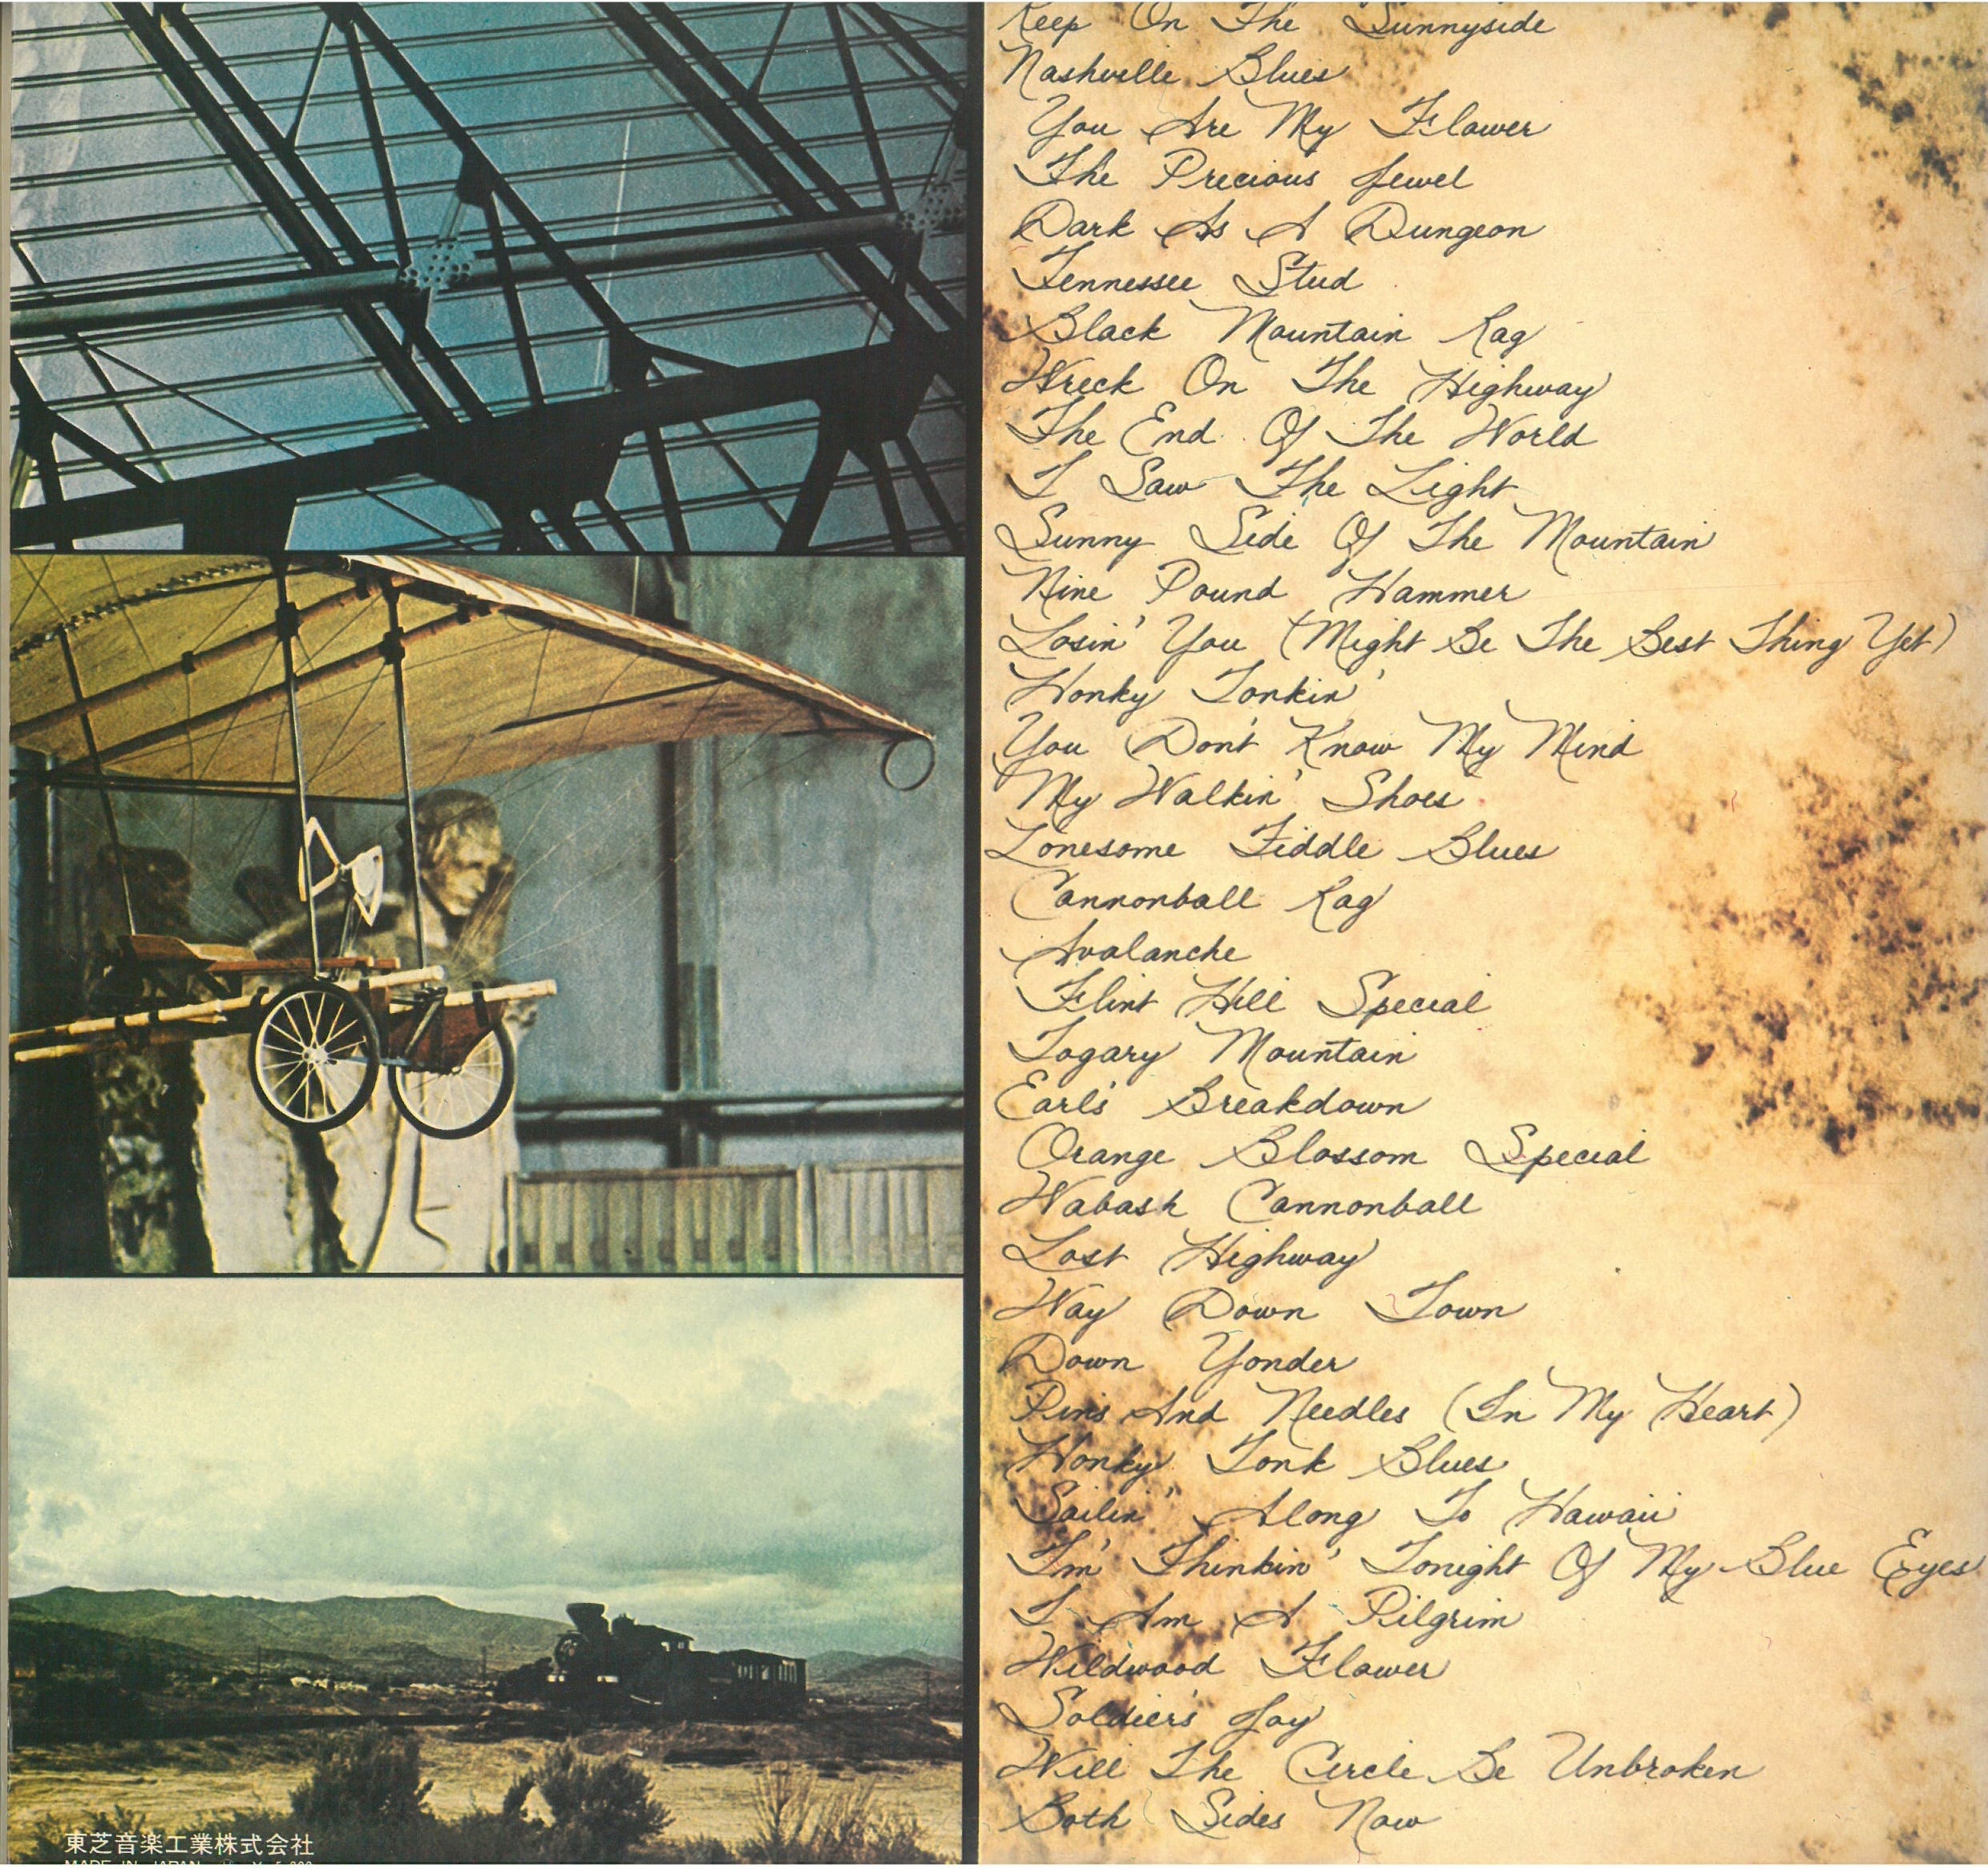 Keep On The Sunnyside
Nashville Blues
You Are My Flower
The Precious Jewel
Dark As A Dungeon
Tennessee Stud
Black Mountain Rag
Wreck On The Highway
The End Of The World
I Saw The Light
Sunny Side Of The Mountain
Nine Pound Hammer
Losin' You (Might Be The Best Thing Yet)
Honky Tonkin'
You Don't Know My Mind
My Walkin' Shoes
Lonesome Fiddle Blues
Cannonball Rag
Avalanche
Flint Hill Special
Togary Mountain
Earl's Breakdown
Orange Blossom Special
Wabash Cannonball
Lost Highway
Way Down Town
Down Yonder
Pins And Needles (In My Heart)
Honky Tonk Blues
Sailin' Along To Hawaii
I'm Thinkin' Tonight Of My Blue Eyes
I Am A Pilgrim
Wildwood Flower
Soldier's Joy
Will The Circle Be Unbroken
Both Sides Now
東芝音楽工業株式会社
MADE IN JAPAN